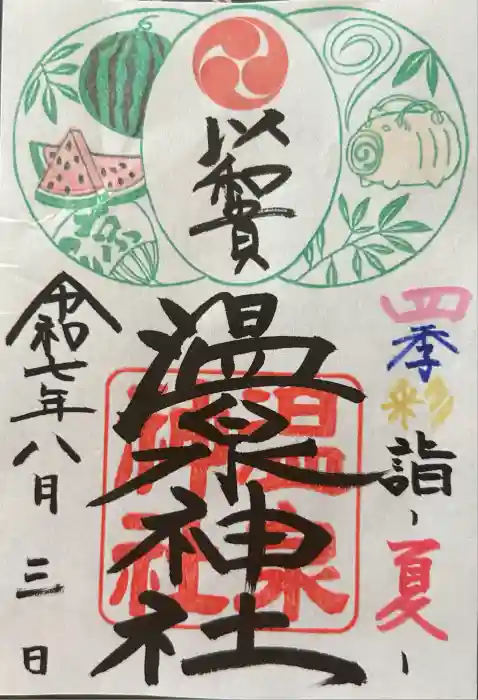 四季彩詣
~夏~
以和貴
温泉神社
温泉
神社
令和七年八月三日